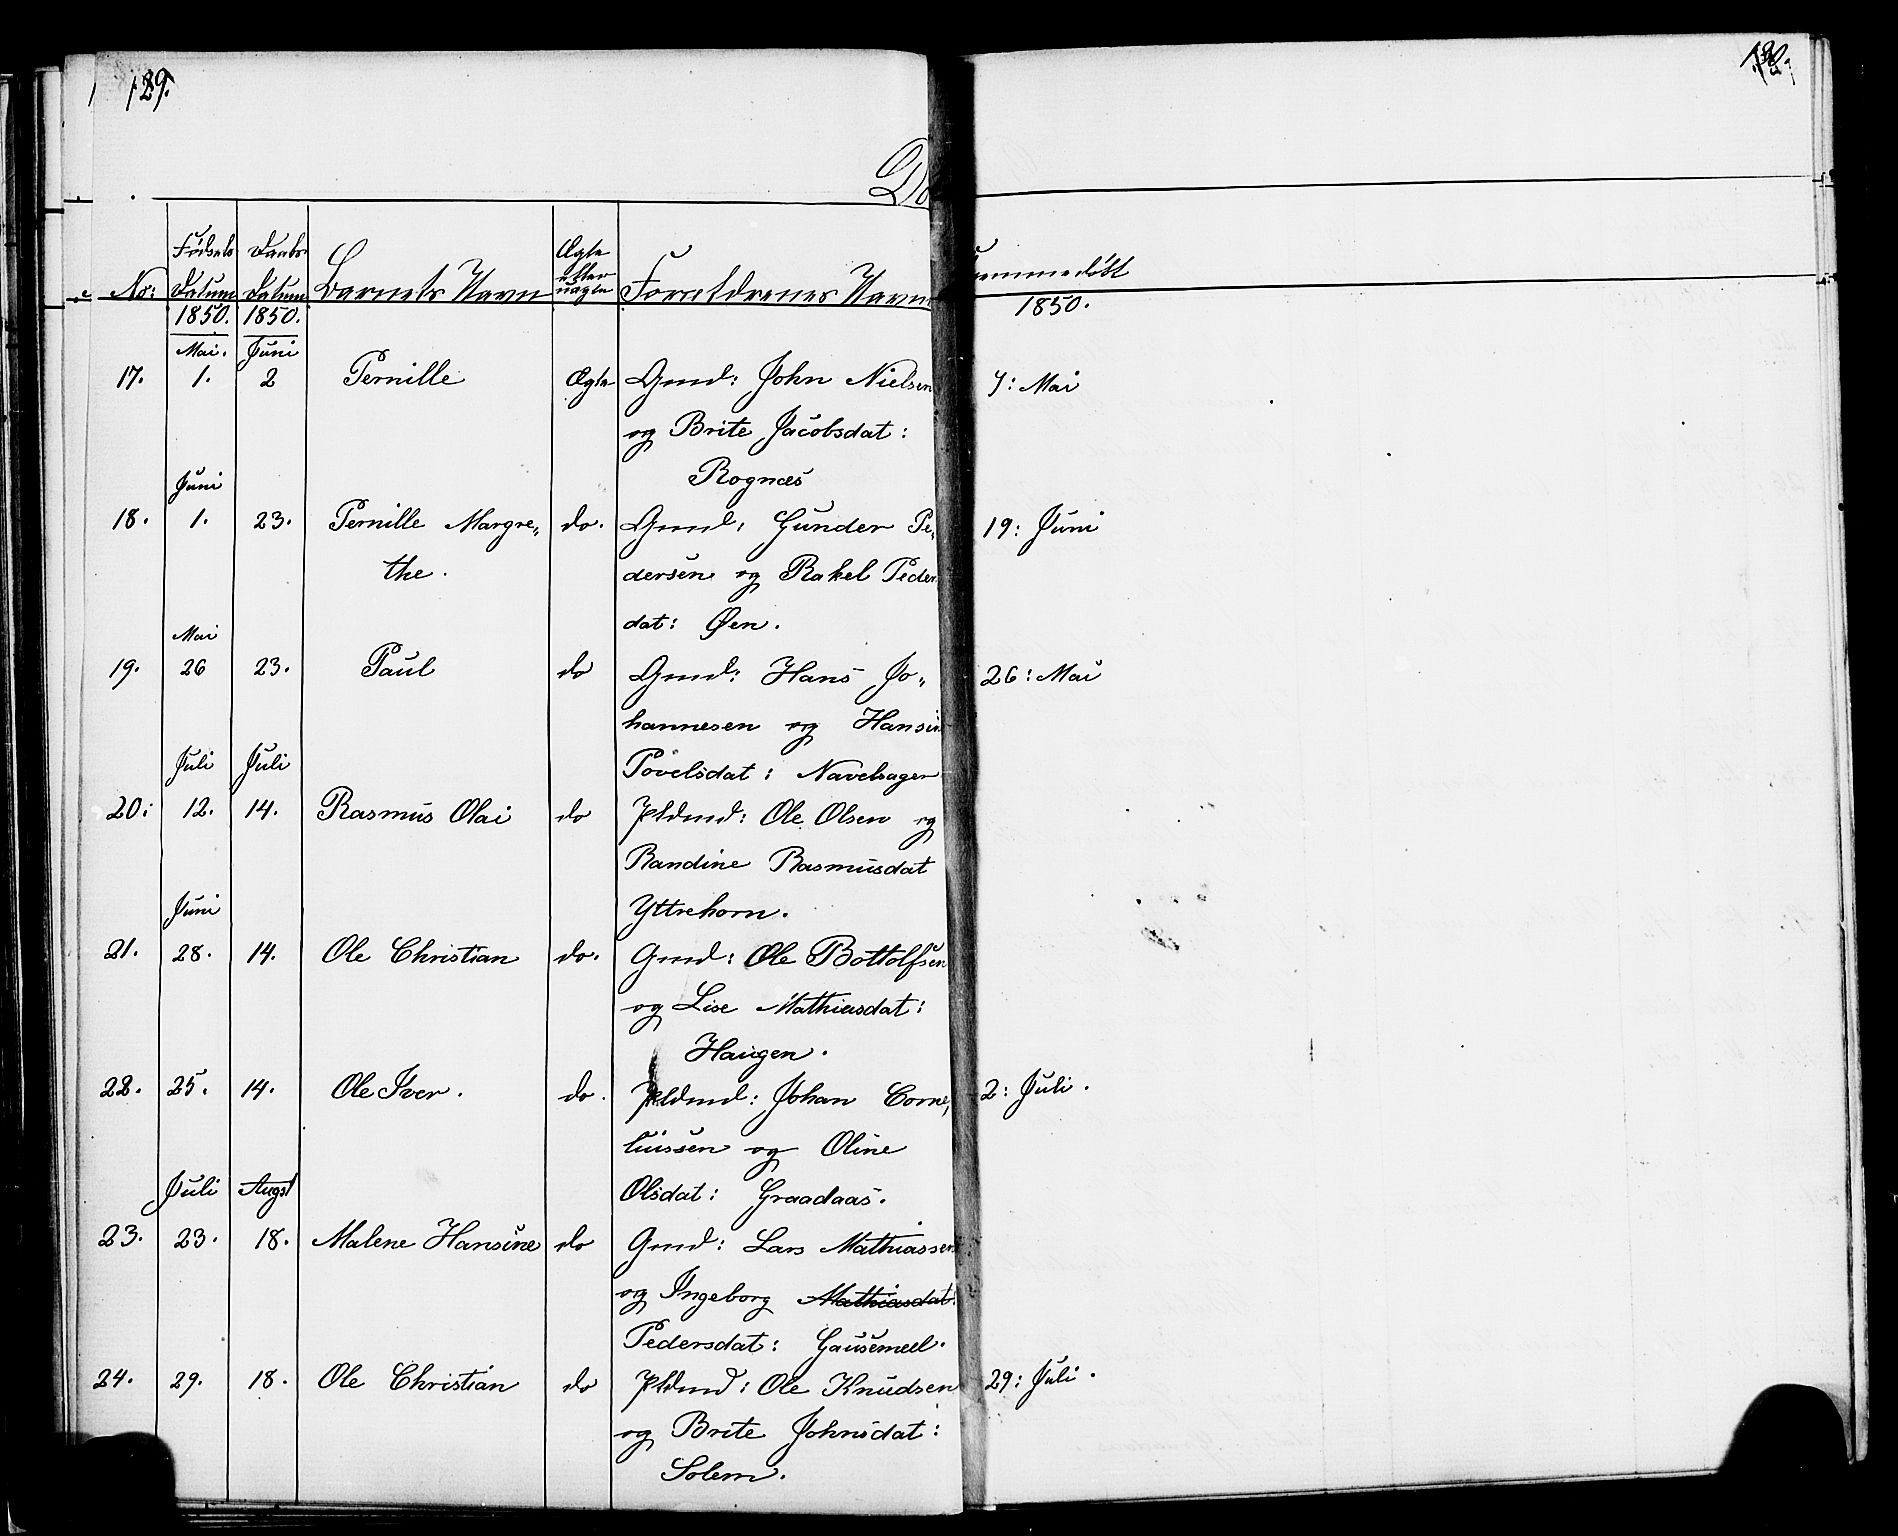 129.
Do
Fødsels Daabs Ægte
eller
No: Datum Datum Barnets Navn uægte Forældrenes Navn
hjemmedøbt
1850. 1850. 1850.
Mai. Juni
17. 1. 2 Pernille Ægte Gmd: John Nielsen 7: Mai
og Brite Jacobsdat:
Juni Rognæs
18. 1. 23. Pernille Margre„ do. Gmd: Gunder Pe„ 19: Juni
the. dersen og Rakel Peder
dat: Øen.
Mai
19. 26 23. Paul do Gmd: Hans Jo„ 26: Mai
hannesen og Hansin
Juli Juli Povelsdat: Navelsager
20: 12. 14. Rasmus Olai do Pldmd: Ole Olsen og
Randine Rasmusdat
Juni Yttrehorn.
21. 28. 14. Ole Christian do. Gmd: Ole Bottolfsen
og Lise Mathiasdat:
Haugen.
22. 25. 14. Ole Iver. do. Pldmd: Johan Corne, 2: Juli.
liussen og Oline
Juli Augst Olsdat: Graadaas.
23. 23. 18. Malene Hansine do Gmd: Lars Mathiassen
og Ingeborg Mathiasdat:
Pedersdat: Gausemell.
24. 29. 18. Ole Christian do Pldmd: Ole Knudsen 29: Juli.
og Brite Johnsdat:
Solem.